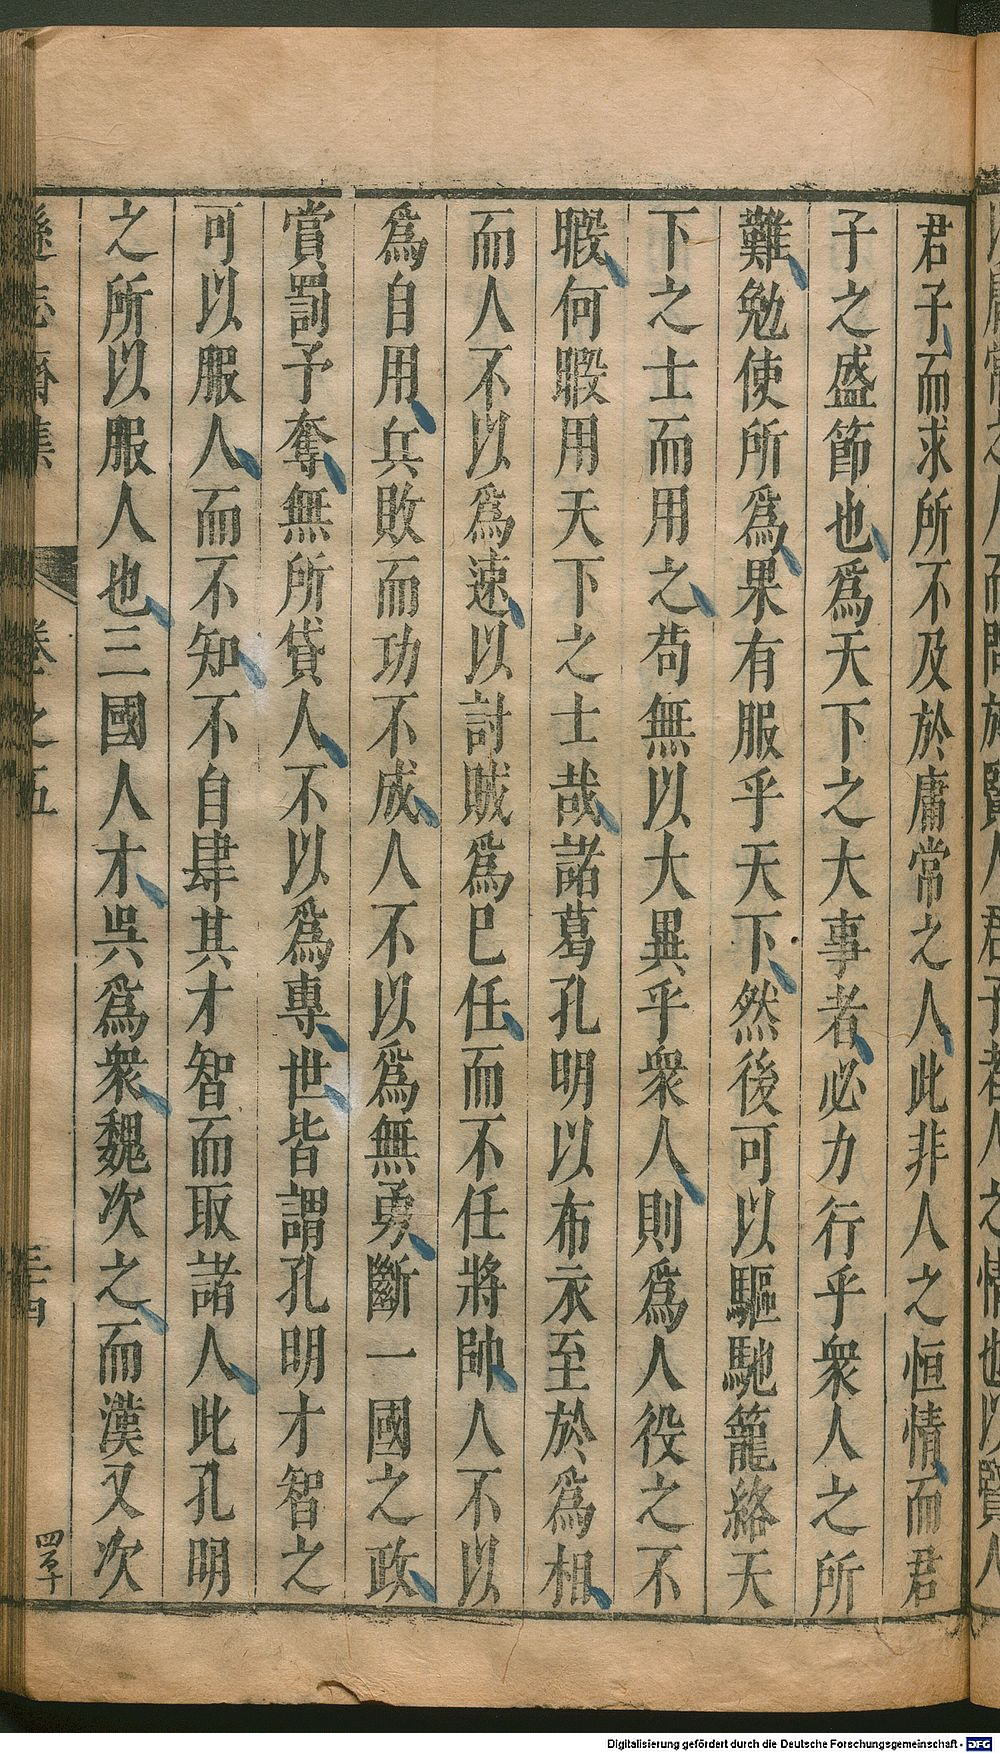 君子而求所不及於庸常之人此非人之恒情而君
子之盛節也為天下之大事者必力行乎衆人之所
難勉使所為果有服乎天下然後可以驅馳籠絡天
下之士而用之苟無以大異乎衆人則為人役之不
暇何暇用天下之士哉諸葛孔明以布衣至於為相
而人不以為速以討賊為己任而不任將帥人不以
為自用兵敗而功不成人不以為無勇斷一國之政
賞罰予奪無所貸人不以為專世皆謂孔明才智之
可以服人而不知不自肆其才智而取諸人此孔明
之所以服人也三國人才吳為衆魏次之而漢又次
遜志齋集 卷之五 三十四
Digitalisierung gefördert durch die Deutsche Forschungsgemeinschaft - DFG